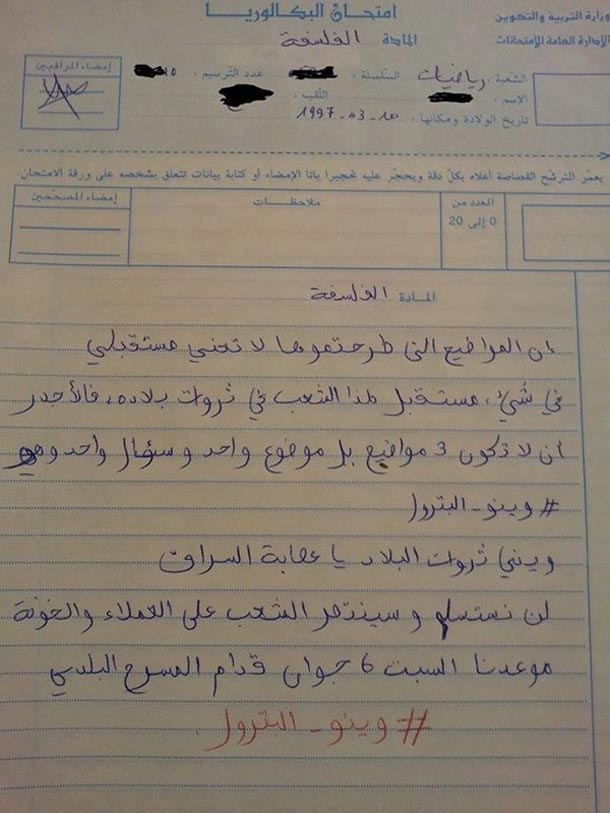 وزارة التربية والتكوين
الإدارة العامة للامتحانات
امتحان البكالوريا
المادة الفلسفة
إمضاء المراقبين
الشعبة : رياضيات السلسلة : عدد الترسيم : 15
الإسم : اللقب :
تاريخ الولادة ومكانها : 10 - 03 - 1997
يعمّر الترشح القصاصة أعلاه بكلّ دقة ويحجّر عليه تحجيرا باتا الإمضاء أو كتابة بيانات تتعلق بشخصه على ورقة الامتحان.
العدد من
0 إلى 20
ملاحظات
إمضاء المصححين
المادة الفلسفة
إن المواضيع التي طرحتموها لا تعني مستقبلي
في شيئ، مستقبل هذا الشعب في ثروات بلاده، فالأجدر
أن لا تكون 3 مواضيع بل موضوع واحد و سؤال واحد وهو
# وينو_البترول
ويني ثروات البلاد يا عصابة السراق
لن نستسلم و سينتصر الشعب على العملاء والخونة
موعدنا السبت 6 جوان قدام المسرح البلدي
# وينو_البترول